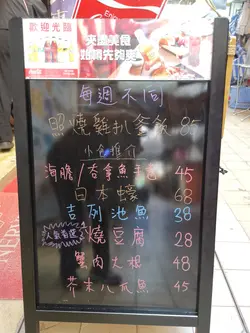 歡迎光臨
夾溫美食
每週不同
照燒雞扒釜飯 85
小食推介
海膽/吞拿魚手卷 45
日本蠔 68
吉列池魚 38
人氣首選 燒豆腐 28
蟹肉大根 48
芥末八爪魚 45